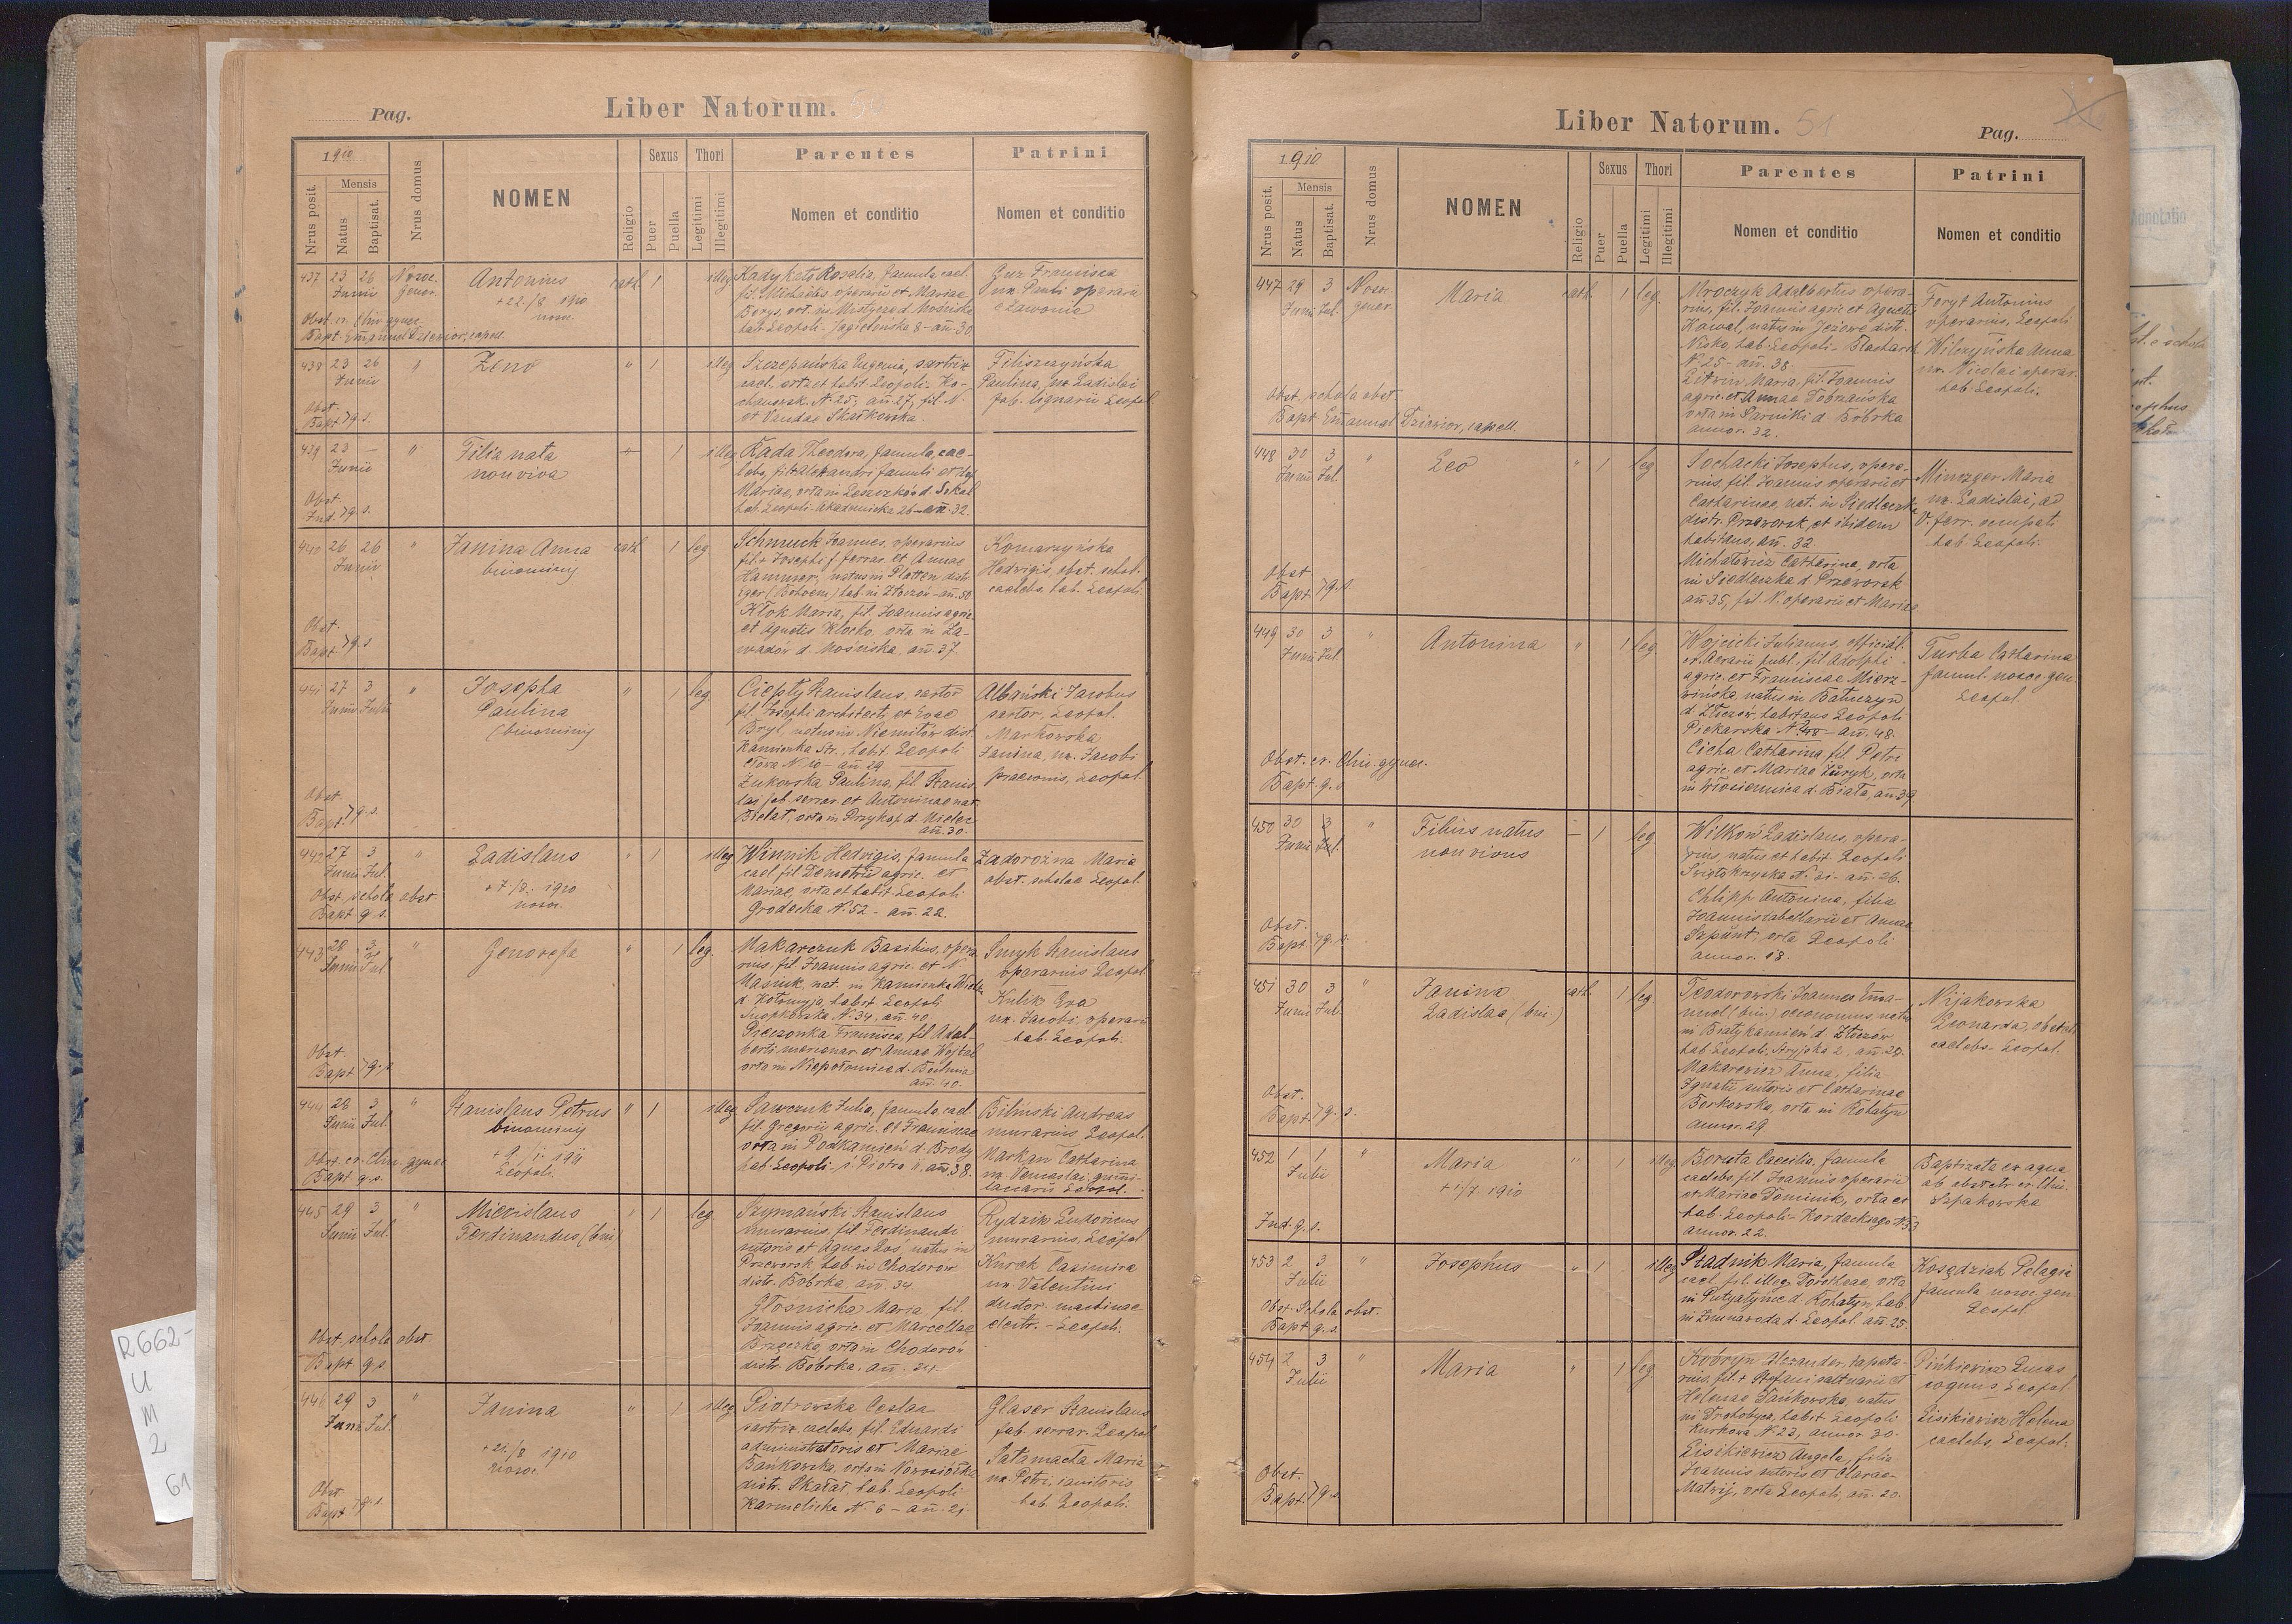 Pag.
Liber Natorum. 50
1910
Nrus posit.
Mensis
Natus
Baptisat.
Nrus domus
NOMEN
Religio
Sexus
Puer
Puella
Thori
Legitimi
Illegitimi
Parentes
Nomen et conditio
Patrini
Nomen et conditio
437 23 26 Nosoc. Antonius cath. 1 illeg.
Junii gener. + 22./8 1910
nosoc.
Obst. ex Clin. gynec.
Bapt. Emanuel Dziewior, capell.
Rosalia, famula cael.
fil. Michaëlis operarii et Mariae
Borys, ort. in Mistyczo d. Mościska
hab. Leopoli - Jagielońska 8 - ań. 30
Guz Francisca
ux. Pauli operarii
e Zawonia
438 23 26 " Zeno " 1 illeg.
Junii
Obst.
Bapt. } q. s.
Szczepańska Eugenia, sartrix
cael. orta et habit. Leopoli - Ko-
chanowsk. N. 25, ań. 27, fil. N.
et Vandae Skałkowska.
Filiszczyńska
Paulina, ux. Ladislai
fab. lignarii Leopol.
439 23 — " Filia nata 1 illeg.
Junii non viva
Obst.
Ind. } q. s.
Kada Theodora, famula, cae-
lebs, fil. Alexandri famuli et
Mariae, orta in Leszczków d. Sokal
hab. Leopoli - Akademicka 26 - ań. 32.
440 26 26 " Janina Anna cath. 1 leg.
Junii binominis
Obst.
Bapt. } q. s.
Schmuck Joannes, operarius
fil. + Josephi f. ferrar. et Annae
Hammer, natus in Platten distr.
Eger (Bohoem.) hab. in Złoczów - ań. 50
Klok Maria, fil. Joannis agric.
et Agnetis Klocko, orta in Za-
wadów d. Mościska, ań. 37.
Komarzyńska
Hedvigis, obst. schol.
caelebs, hab. Leopoli.
441 27 3 " Josepha " 1 leg.
Junii Julii Paulina
(binominis)
Obst.
Bapt. } q. s.
Ciepły Stanislaus, sartor
fil. Josephi architecti et Evae
Bryl, natus in Niemiłów dist.
Kamionka Str., habit. Leopoli
N. 10 - ań. 29
Żukowska Paulina, fil. Stanis-
lai fab. serrar. et Antoninae nat.
Bielat, orta in Przykop d. Mielec
ań. 30.
Albański Jacobus
sartor, Leopol.
Markowska
Janina, ux. Jacobi
praeconis, Leopol.
442 27 3 " Ladislaus " 1 illeg.
Junii Jul.
+ 7/8. 1910
nosoc.
Obst. schola obst.
Bapt. q. s.
Winnik Hedvigis, famula
cael. fil. Demetrii agric. et
Mariae, orta et habit. Leopoli
Grodecka N. 52 - ań. 22.
Zadorożna Maria
obst. scholae Leopol.
443 28 3 " Genovefa " 1 leg.
Junii Jul.
Obst.
Bapt. } q. s.
Makarczuk Basilius, opera-
rius, fil. Joannis agric. et N.
Masiuk, nat. in Kamionka Wielka
d. Kołomyja, habit. Leopoli
Snopkowska N. 34, ań. 40
Pieczonka Francisca, fil. Adal-
berti mercenar. et Annae Wojtal
orta in Niepołomice d. Bochnia
ań. 40.
Smyk Stanislaus
operarius Leopol.
Kulik Eva
ux. Jacobi, operarii
hab. Leopoli.
444 28 3 " Stanislaus Petrus " 1 illeg.
Junii Jul. binominis
+ 9./1. 1911
Leopoli
Obst. ex Clin. gynec.
Bapt. q. s.
Sawczuk Julia, famula, cael.
fil. Gregorii agric. et Franciscae
orta in Podkamień d. Brody
hab. Leopoli - ś. Piotra 11. ań. 38.
Biliński Andreas
murarius Leopol.
Markan Catharina
ux. Venceslai
Leopol.
445 29 3 " Miecislaus " 1 leg.
Junii Jul. Ferdinandus (bin.)
Obst. schola obst.
Bapt. q. s.
Szymański Stanislaus
murarius, fil. Ferdinandi
sutoris et Agnes Łoś, natus in
Przeworsk hab. in Chodorów
distr. Bobrka, ań. 34.
Głośnicka Maria, fil.
Joannis agric. et Marcellae
Brzęczka, orta in Chodorów
distr. Bobrka, ań. 24.
Rydzik Ludovicus
murarius, Leopol
Kurek Casimira
ux. Valentini
ductor. machinae
electr. - Leopoli.
446 29 3 " Janina " 1 illeg.
Junii Jul.
+ 21./8 1910
nosoc.
Obst.
Bapt. } q. s.
Piotrowska Ceslaa
sartrix caelebs, fil. Eduardi
administratoris et Mariae
Bańkowska, orta in Nowosiółka
distr. Skałat, hab. Leopoli
Karmelicka N. 6 - ań. 21.
Glaser Stanislaus
fab. serrar. Leopol
Satamacha Maria
ux. Petri, ianitoris
hab. Leopoli.
Liber Natorum. 51
Pag.
1910
Nrus posit.
Mensis
Natus
Baptisat.
Nrus domus
NOMEN
Religio
Sexus
Puer
Puella
Thori
Legitimi
Illegitimi
Parentes
Nomen et conditio
Patrini
Nomen et conditio
447 29 3 Nosoc. Maria cath. 1 leg.
Junii Jul. gener.
Obst. schola obst.
Bapt. Emanuel Dziewior, capell.
Mroczyk Adalbertus opera-
rius, fil. Joannis agric. et Agnetis
Kowal, natus in Jeżowe distr.
Nisko, hab. Leopoli - Blacharsk.
N. 25 - ań. 38.
Litwin Maria, fil. Joannis
agric. et Annae Dobrzańska
orta in Sarniki d. Bobrka
annor. 32.
Foryt Antonius
operarius, Leopoli
Wilczyńska Anna
ux. Nicolai operar.
hab. Leopoli.
448 30 3 " Leo " 1 leg.
Junii Jul.
Obst.
Bapt. } q. s.
Sochacki Josephus, opera-
rius, fil. Joannis operarii et
Catharinae, nat. in Siedleczka
distr. Przeworsk et ibidem
habitans, ań. 32.
Michałowicz Catharina, orta
in Siedleczka d. Przeworsk
ań. 35, fil. N. operarii et Mariae
Minczger Maria
ux. Ladislai, ad
V. ferr. occupati
hab. Leopoli.
449 30 3 " Antonina " 1 leg.
Junii Jul.
Obst. ex Clin. gynec.
Bapt. q. s.
Wojcicki Julianus, official.
Aerarii publ., fil. Adolphi
agric. et Franciscae Mierz-
wińska, natus in Bałuczyn
d. Złoczów, habitans Leopoli
Piekarska ań. 48.
Cicha Catharina, fil. Petri
agric. et Mariae orta
in Włosienica d. Biała, ań. 39.
Turba Catharina
famul. nosoc. gen.
Leopol.
450 30 3 " Filius natus — 1 leg.
Junii Jul. non vivus
Obst.
Bapt. } q. s.
Wilkoń Ladislaus, opera-
rius, natus et habit. Leopoli
Świętokrzyska N. 21 - ań. 26.
Chlipp Antonina, filia
Joannis tabellarii et Annae
Szpunt, orta Leopoli
annor. 18.
451 30 3 " Janina cath. 1 leg.
Junii Jul. Ladislaa (bin.)
Obst.
Bapt. } q. s.
Teodorowski Joannes Ema-
nuel (bin.) oeconomus, natus
in Białykamień d. Złoczów
hab. Leopoli, Stryjska 2, ań. 29.
Makarewicz Anna, filia
Ignatii sutoris et Catharinae
Borkowska, orta in Rohatyn
annor. 29
Nijakowska
Leonarda, obstetr.
caelebs - Leopol.
452 1 1 " Maria " 1 illeg.
Julii + 1/7. 1910
Ind. q. s.
Boruta Caecilia, famula
caelebs, fil. Joannis operarii
et Mariae Dominik, orta et
hab. Leopoli - Kordeckiego N. 53
annor. 22.
Baptizata ex aqua
ab obstetr. ex Clin.
Szpakowska
453 2 3 " Josephus " 1 illeg.
Julii
Obst. Schola obst.
Bapt. q. s.
Stadnik Maria, famula
cael. fil. illeg. Dorotheae, orta
in Putyatyńce d. Rohatyn, hab.
in Zimnawoda d. Leopol. ań. 25.
Kosędziak Pelagia
famula nosoc. gen.
Leopol.
454 2 3 " Maria " 1 leg.
Julii
Obst.
Bapt. } q. s.
Kobryn Alexander, tapeta-
rius, fil. + Stefani saltuarii et
Helenae Dańkowska, natus
in Drohobycz, habit. Leopoli
Kurkowa N. 23, annor. 30.
Lisikiewicz Angela, filia
Joannis sutoris et Clarae
Matwij, orta Leopoli, ań. 20.
Pińkiewicz Lucas
coquus, Leopol
Lisikiewicz Helena
caelebs, Leopol.
Adnotatio
R662-
U
M
2
61